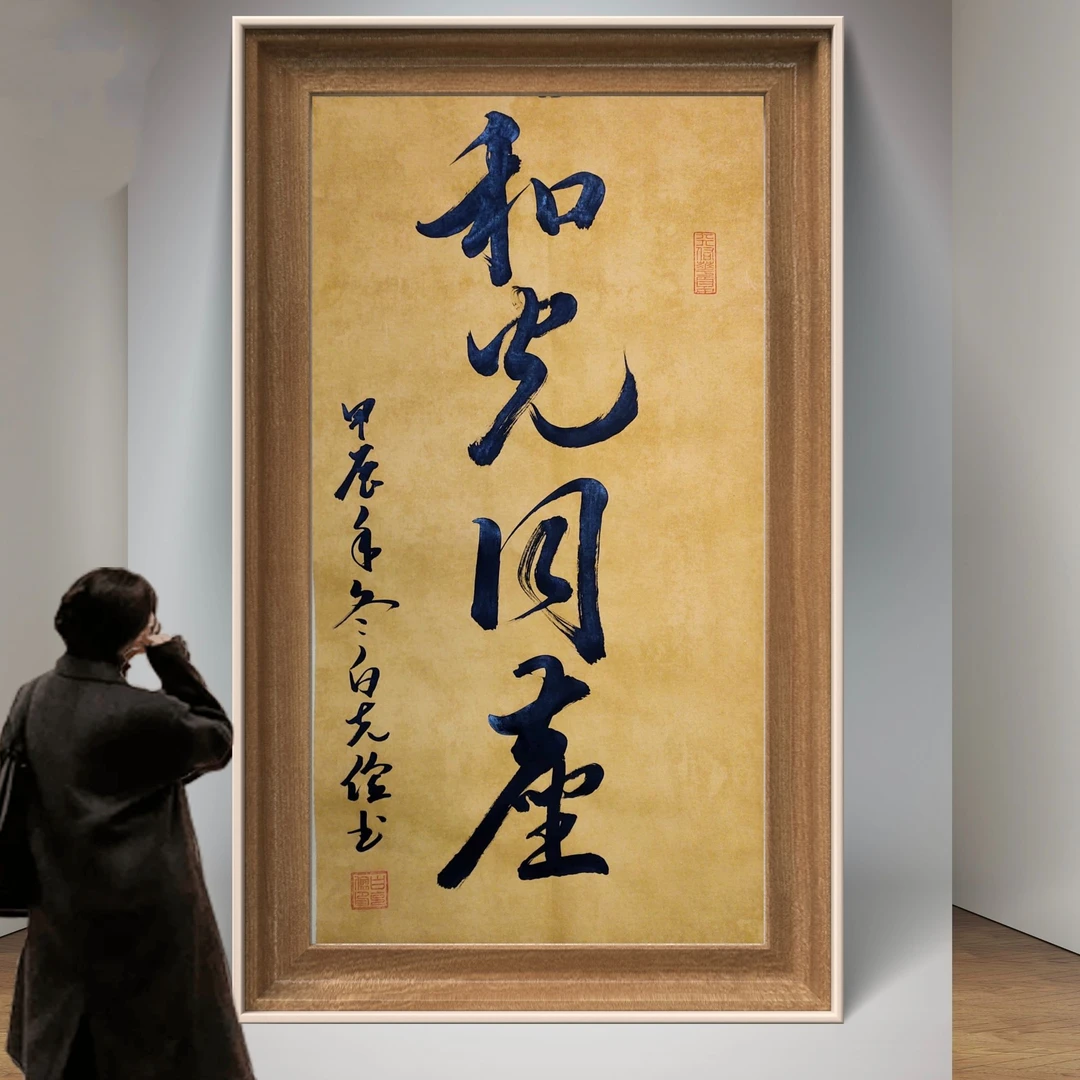 和光同塵
甲辰年冬白先俭书